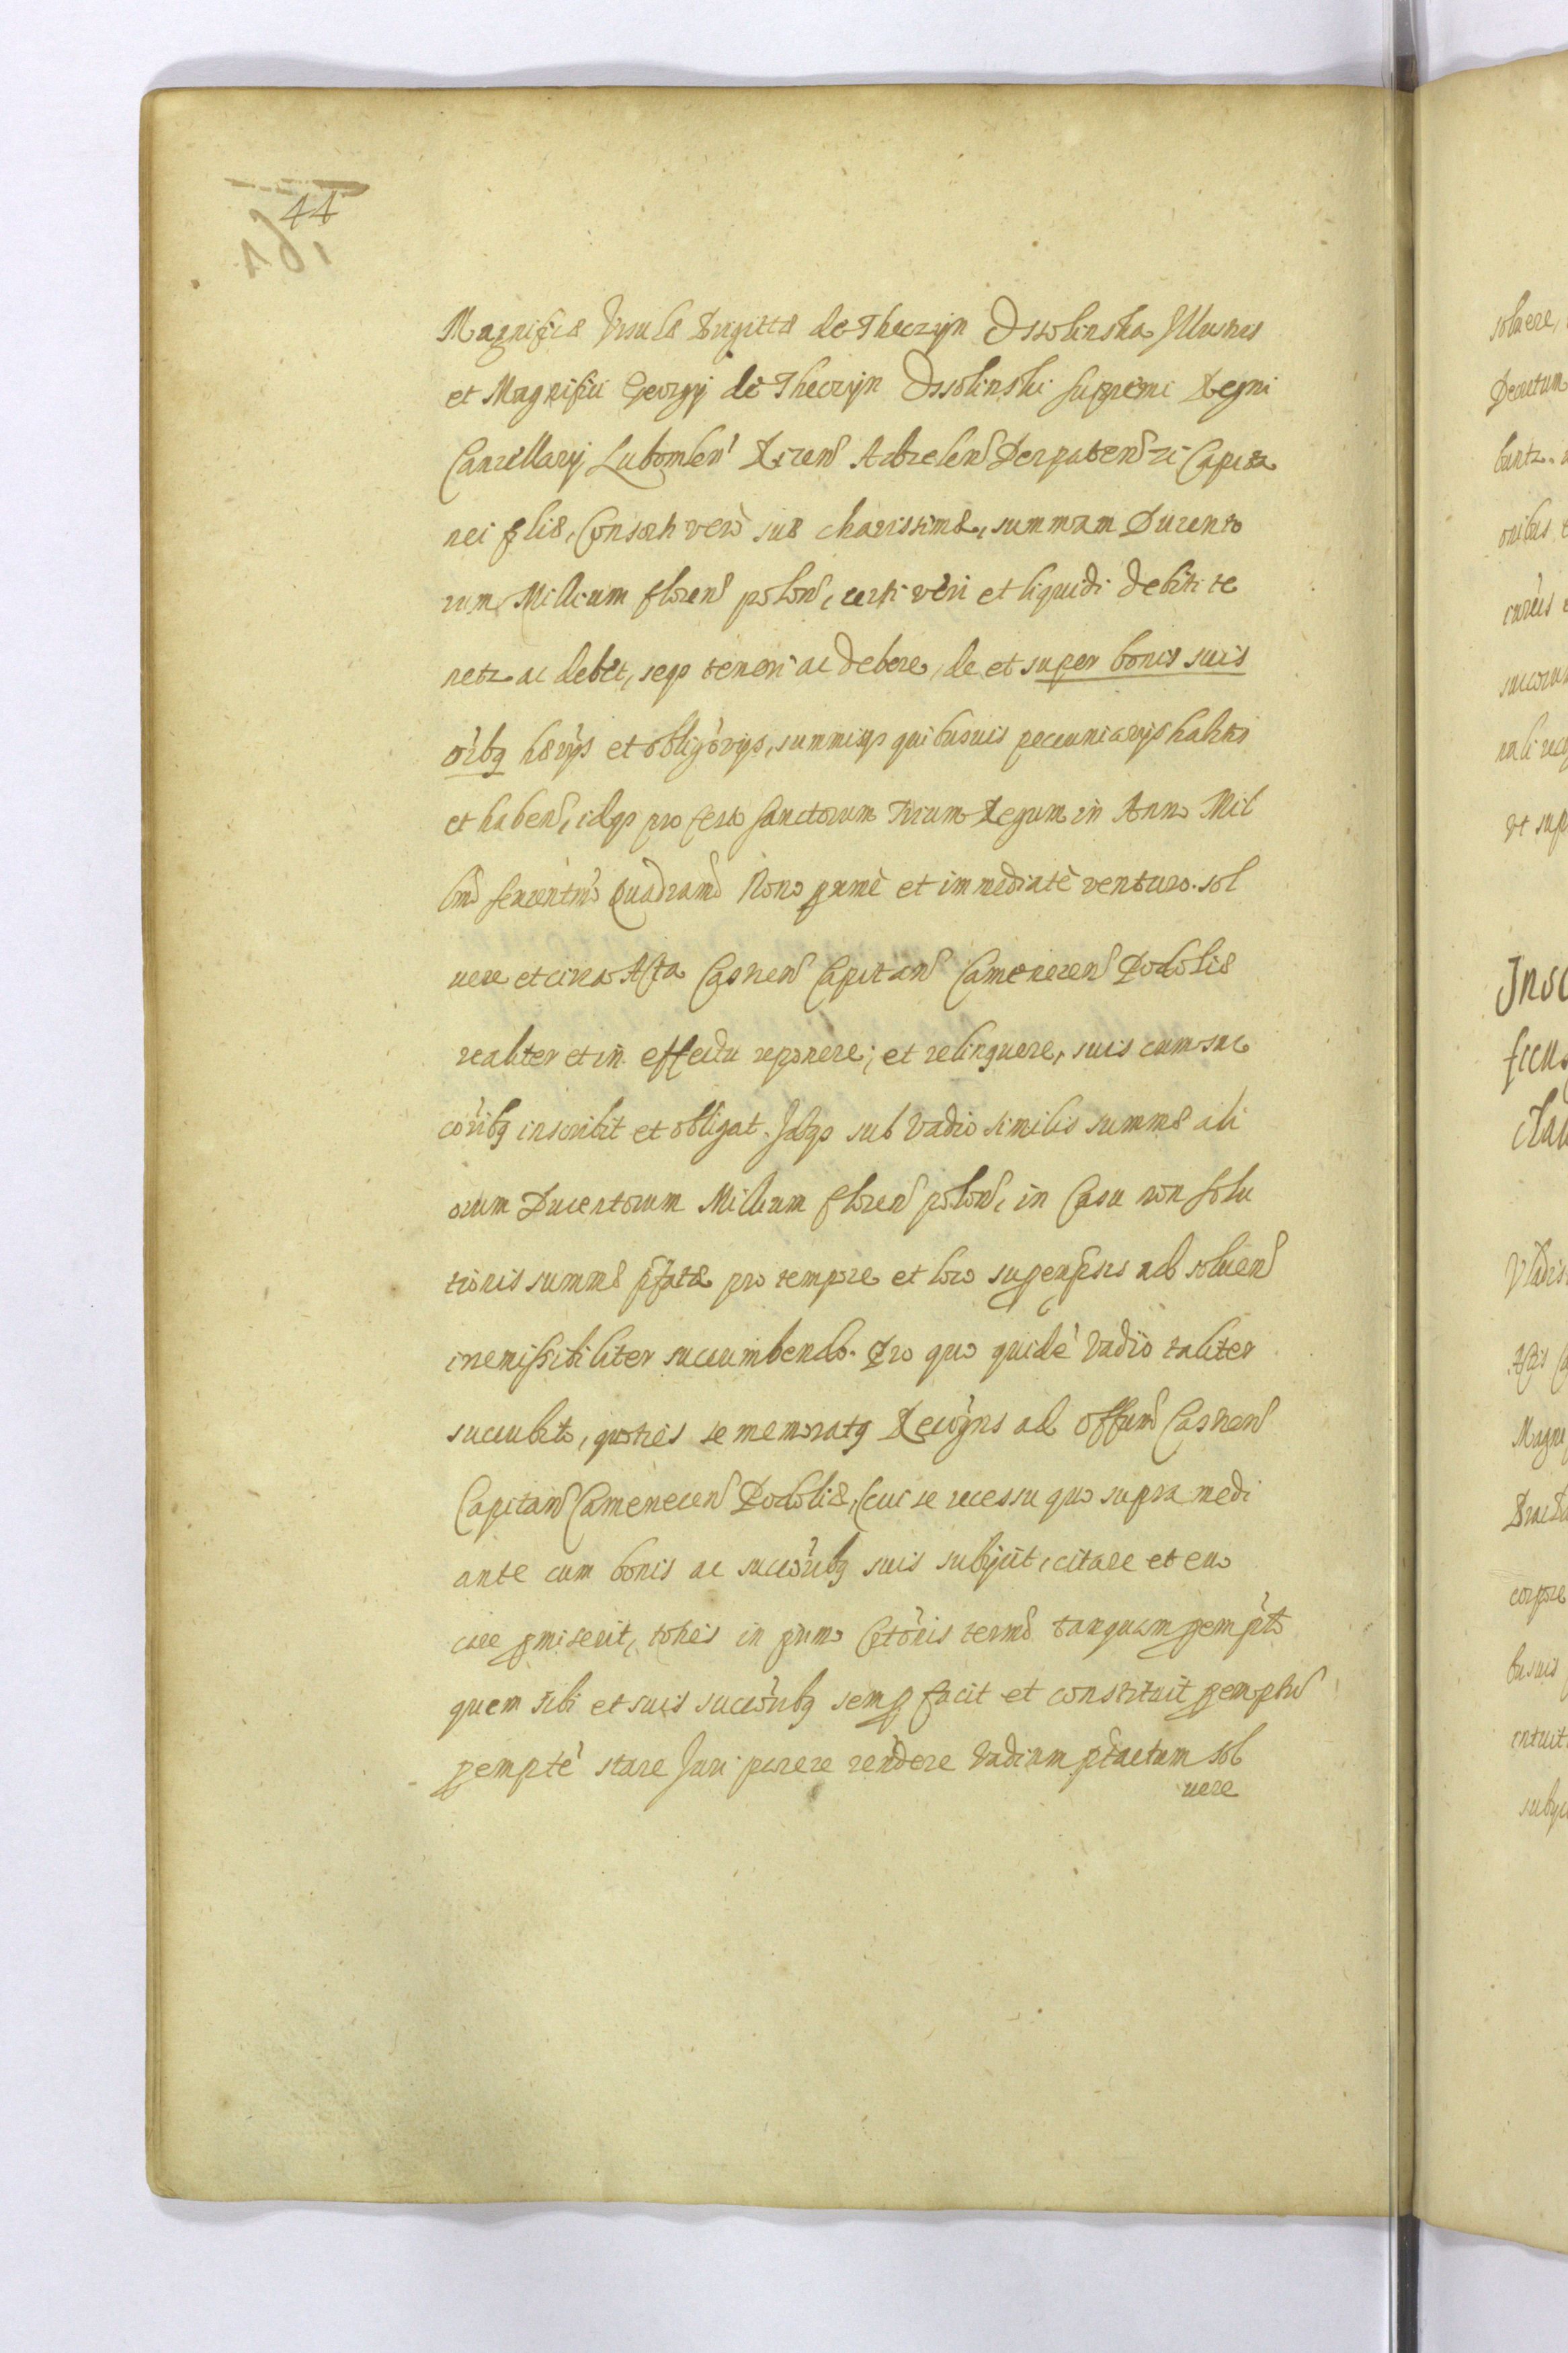 44
161
Magnificæ Ursulæ Brigittæ de Theczyn Ossolinska Illustris
et Magnifici Georgij de Theczyn Ossolinski Supremi Regni
Cancellarij Lubomlen Ricen Adzelen Derpaten zc Capita
nei filiæ, Consorti verò suæ charissimæ, summam Ducento
rum Millium floren polon, certi veri et liquidi debiti te
netz ac debet, seqz teneri ac debere, de et super bonis suis
oibq hærijs et obligorijs, summisqz quibusuis pecuniarijs habitis
et haben, idqz pro festo Sanctorum Trium Regum in Anno Mil
lmo sexcentmo Quadramo Nono proxime et immediatè venturo. sol
uere et circa Acta Casnen Capitan Camenecen Podoliæ
realiter et in effectu reponere, et relinquere, suis cum suc
coribq inscribit et obligat. Idqz sub Vadio similis summæ ali
orum Ducentorum Millium floren polon, in Casu non solu
tionis summæ pfatæ pro tempore et loco supenpsis ad soluen
irremissibiliter succumbendo. Pro quo quidē Vadio taliter
succubito, quoties se memoratq Recogns ad Offum Casnen
Capitan Camenecen Podoliæ, (cui se recessu quo supra medi
ante cum bonis ac succoribq suis subijcit, citare et euo
care pmiserit, toties in primo Citonis termo tanquam pempto
quem sibi et suis succoribq semp facit et constituit pemptu
pempte stare Juri parere rendere Vadium ptactum sol
uere
soluere,
Decretum
bantz.
onibus
nali
vt sup
Magni
corpore
busuis